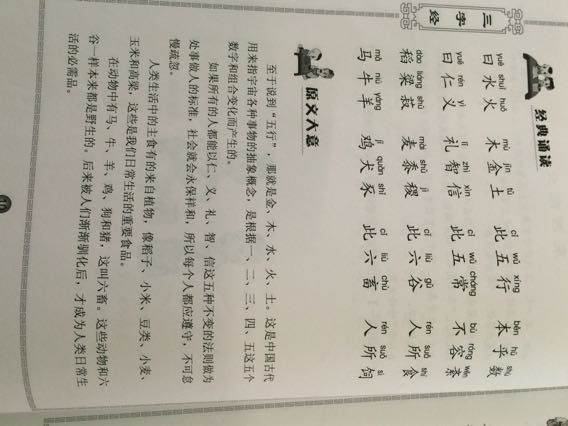 三字经
经典诵读
yuē shuǐ huǒ mù jīn tǔ cǐ wǔ xíng běn hū shù
曰水火 木金土 此五行 本乎数
yuē rén yì lǐ zhì xìn cǐ wǔ cháng bù róng wěn
曰仁义 礼智信 此五常 不容紊
dào liáng shū mài shǔ jì cǐ liù gǔ rén suǒ shí
稻粱菽 麦黍稷 此六谷 人所食
mǎ niú yáng jī quǎn shǐ cǐ liù chù rén suǒ sì
马牛羊 鸡犬豕 此六畜 人所饲
原文大意
至于说到“五行”，那就是金、木、水、火、土。这是中国古代
用来指宇宙各种事物的抽象概念，是根据一、二、三、四、五这五个
数字和组合变化而产生的。
如果所有的人都能以仁、义、礼、智、信这五种不变的法则做为
处事做人的标准，社会就会永保祥和，所以每个人都应遵守，不可怠
慢疏忽。
人类生活中的主食有的来自植物，像稻子、小米、豆类、小麦、
玉米和高粱，这些是我们日常生活的重要食品。
在动物中有马、牛、羊、鸡、狗和猪，这叫六畜。这些动物和六
谷一样本来都是野生的。后来被人们渐渐驯化后，才成为人类日常生
活的必需品。